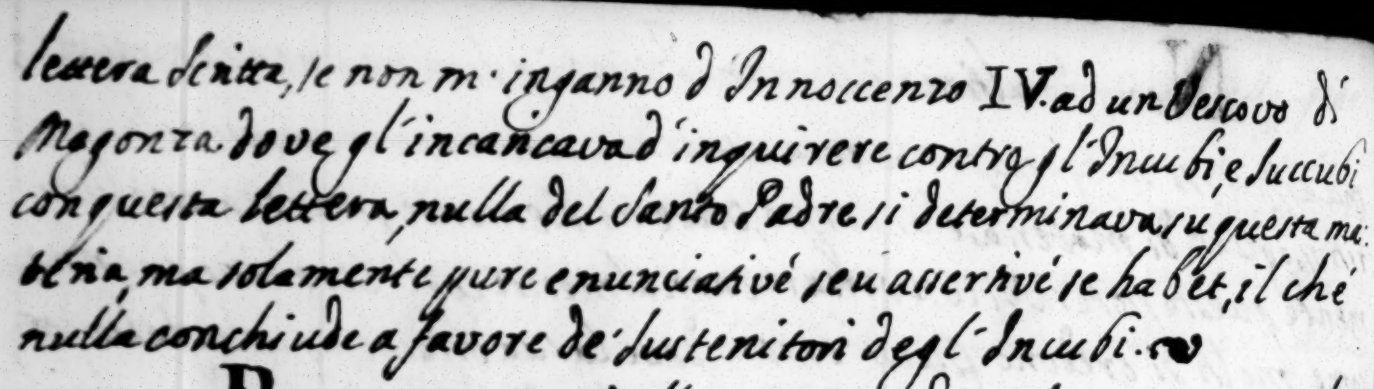 lettera scritta, se non m'inganno d'Innoccenzo IV. ad un Vescovo di
Magonza dove gl'incaricava d'inquirere contro gl'Incubi, e Succubi
con questa lettera, nulla del Santo Padre si determinava su questa ma:
teria, ma solamente pure enunciativé seu assertivé se habet, il ché
nulla conchiude a favore de' sustenitori degl'Incubi.